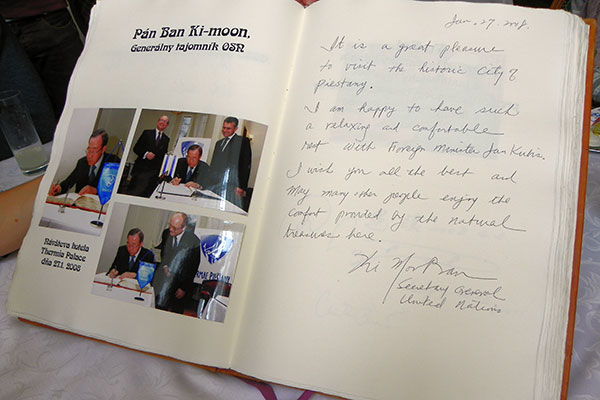 Pán Ban Ki-moon,
Generálny tajomník OSN
Návšteva hotela
Thermia Palace
dňa 27.1. 2008
Jan. 27. 2008.
It is a great pleasure
to visit the historic City of
Piestany.
I am happy to have such
a relaxing and comfortable
rest with Foreign Minister Jan Kubis.
I wish you all the best and
may many other people enjoy the
comfort provided by the natural
treasures here.
Ki Moon Ban
Secretary General
United Nations